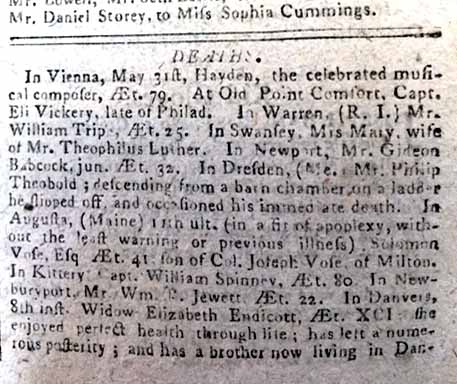 Mr. Daniel Storey, to Miss Sophia Cummings.
DEATHS.
In Vienna, May 31st, Hayden, the celebrated musi-
cal composer, Æt. 79. At Old Point Comfort, Capt.
Eli Vickery, late of Philad. In Warren, (R. I.) Mr.
William Trip, Æt. 25. In Swansey, Mis Mary, wife
of Mr. Theophilus Luther. In Newport, Mr. Gideon
Babcock, jun. Æt. 32. In Dresden, (Me. Mr. Philip
Theobold; descending from a barn chamber on a ladder
he slipped off, and occasioned his immed ate death. In
Augusta, (Maine) 11th ult. (in a fit of apoplexy, with-
out the least warning or previous illness) Solomon
Vose, Esq Æt. 41 son of Col. Joseph Vose, of Milton.
In Kittery Capt. William Spinney, Æt. 80 In New-
buryport, Mr Wm. Jewett Æt. 22. In Danvers,
8th inst. Widow Elizabeth Endicott, Æt. XCI she
enjoyed perfect health through life; has left a nume-
rous posterity; and has a brother now living in Dan-